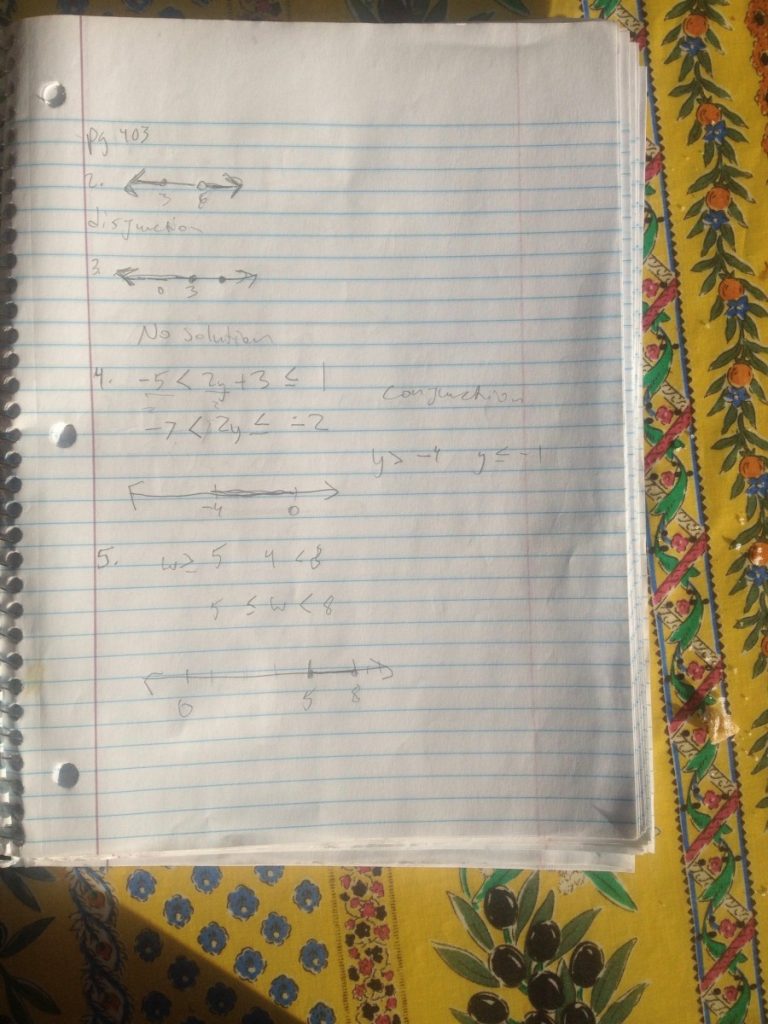 pg 403
2.
3 6
disjunction
3.
0 3
No solution
4. -5 < 2y + 3 ≤ 1
conjunction
-7 < 2y ≤ -2
y > -4 y ≤ -1
-4 0
5. w ≥ 5 4 < 8
5 ≤ w < 8
0 5 8